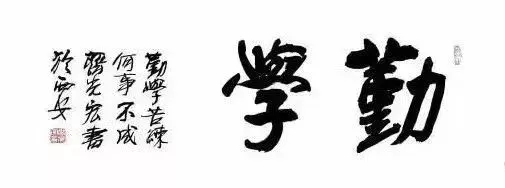 勤學
勤學苦練
何事不成
宏書
於西安